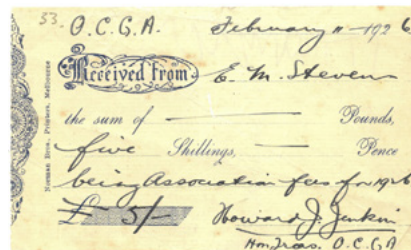 53. O.C.G.A. February 11 - 1926
Received from E. M. Stevens
the sum of Pounds,
five Shillings, Pence
being Association fees for 1926
£ 5/- Howard J. Jenkins
Hon Treas. O.C.G.A
Norman Bros., Printers, Melbourne